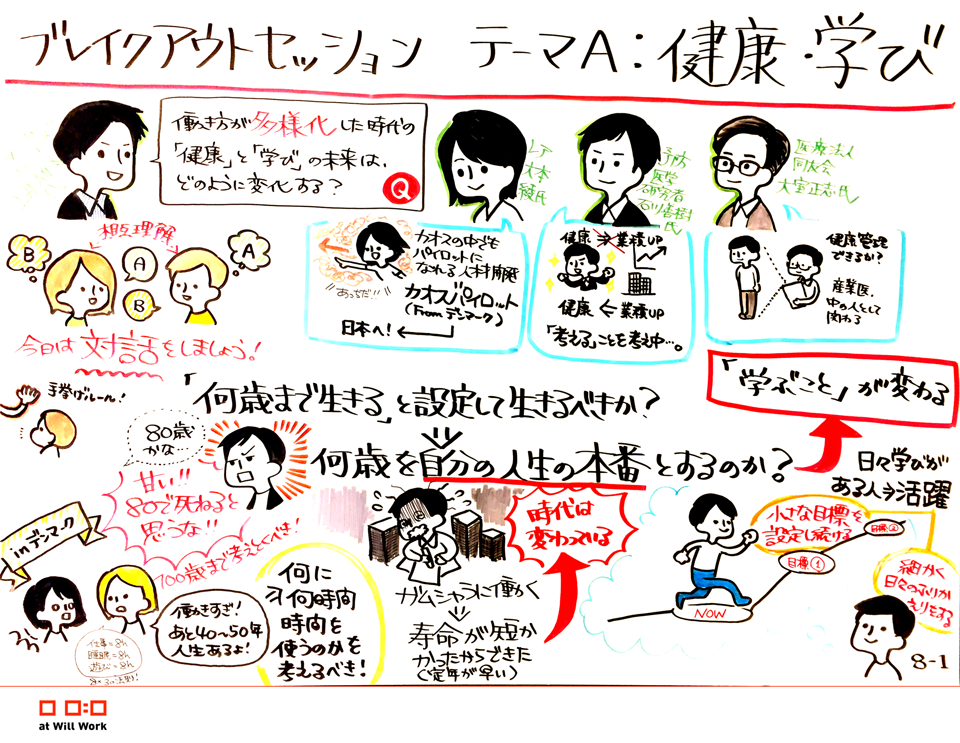 ブレイクアウトセッション テーマA:健康・学び
働き方が多様化した時代の
「健康」と「学び」の未来は、
どのように変化する?
Q
LIT
大本
綾氏
予防
医学
研究者
石川善樹
氏
医療法人
同友会
大室正志氏
相互理解
B
A
A
B
今日は対話をしましょう!
カオスの中でも
パイロットに
なれる人材開発
カオスパイロット
(From デンマーク)
日本へ!
"あっちだ!!"
健康 ⇒ 業績UP
健康 ← 業績UP
「考える」ことを考え中…。
健康管理
できるか?
産業医、
中の人として
関わる
手挙げルール!
「何歳まで生きる」と設定して生きるべきか?
何歳を自分の人生の本番とするのか?
「学ぶこと」が変わる
80歳
かな…
甘い!!
80で死ねると
思うな!!
100歳まで考えとべき!
in デンマーク
働きすぎ!
あと40~50年
人生あるよ!
仕事=8h
睡眠=8h
遊び=8h
何に
何時間
時間を
使うのかを
考えるべき!
ガムシャらに働く
寿命が短か
かったからできた
(定年が早い)
時代は
変わっている
日々学びが
ある人が活躍
小さな目標を
設定し続ける
目標①
目標②
NOW
細かく
日々のふりか
えりをする
8-1
at Will Work